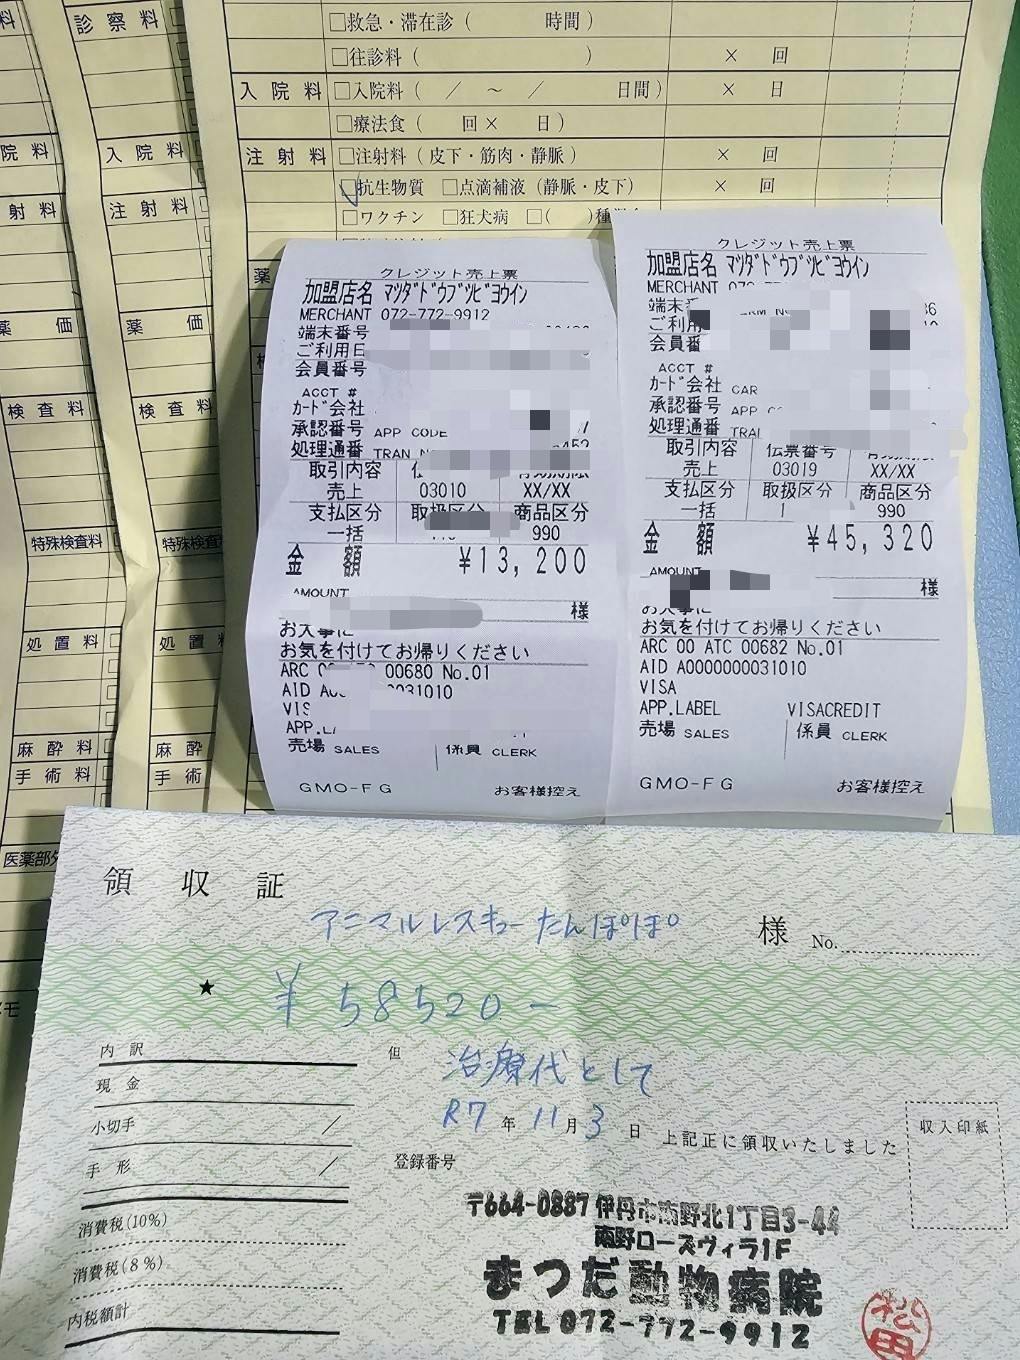 診察料
□救急・滞在診（　　　時間）
□往診料（　　　　　　　）　×　回
入院料 □入院料（　／　～　／　　　日間）　×　日
□療法食（　　回×　　日）
注射料 □注射料（皮下・筋肉・静脈）　×　回
□抗生物質 □点滴補液（静脈・皮下）　×　回
□ワクチン □狂犬病 □（　　）種
院料
入院料
射料
注射料
薬
薬価
薬価
検査料
検査料
特殊検査料
特殊検査
処置料
処置
麻酔料
麻酔
手術料
手術
医薬部外
クレジット売上票
加盟店名 マツダドウブツビヨウイン
MERCHANT 072-772-9912
端末番号
ご利用日
会員番号
ACCT #
カード会社
承認番号 APP CODE
処理通番 TRAN
取引内容
売上 03010 XX/XX
支払区分 取扱区分 商品区分
一括 990
金額 ¥13,200
AMOUNT
様
お大事に
お気を付けてお帰りください
ARC 00680 No.01
AID 0031010
APP.
売場 SALES 係員 CLERK
GMO-FG お客様控え
クレジット売上票
加盟店名 マツダドウブツビヨウイン
MERCHANT
端末
ご利用
会員番
ACCT #
カード会社
承認番号 APP
処理通番
取引内容 伝票番号
売上 03019 XX/XX
支払区分 取扱区分 商品区分
一括 1 990
金額 ¥45,320
AMOUNT
様
お大事に
お気を付けてお帰りください
ARC 00 ATC 00682 No.01
AID A0000000031010
VISA
APP.LABEL VISACREDIT
売場 SALES 係員 CLERK
GMO-FG お客様控え
領収証
アニマルレスキューたんぽぽ 様 No.
★ ¥58520-
内訳
現金
小切手 ／
手形 ／
消費税(10%)
消費税(8%)
内税額計
但 治療代として
R7年11月3日 上記正に領収いたしました
登録番号
収入印紙
〒664-0887 伊丹市南野北1丁目3-44
南野ローズヴィラ1F
まつだ動物病院
TEL 072-772-9912
松田